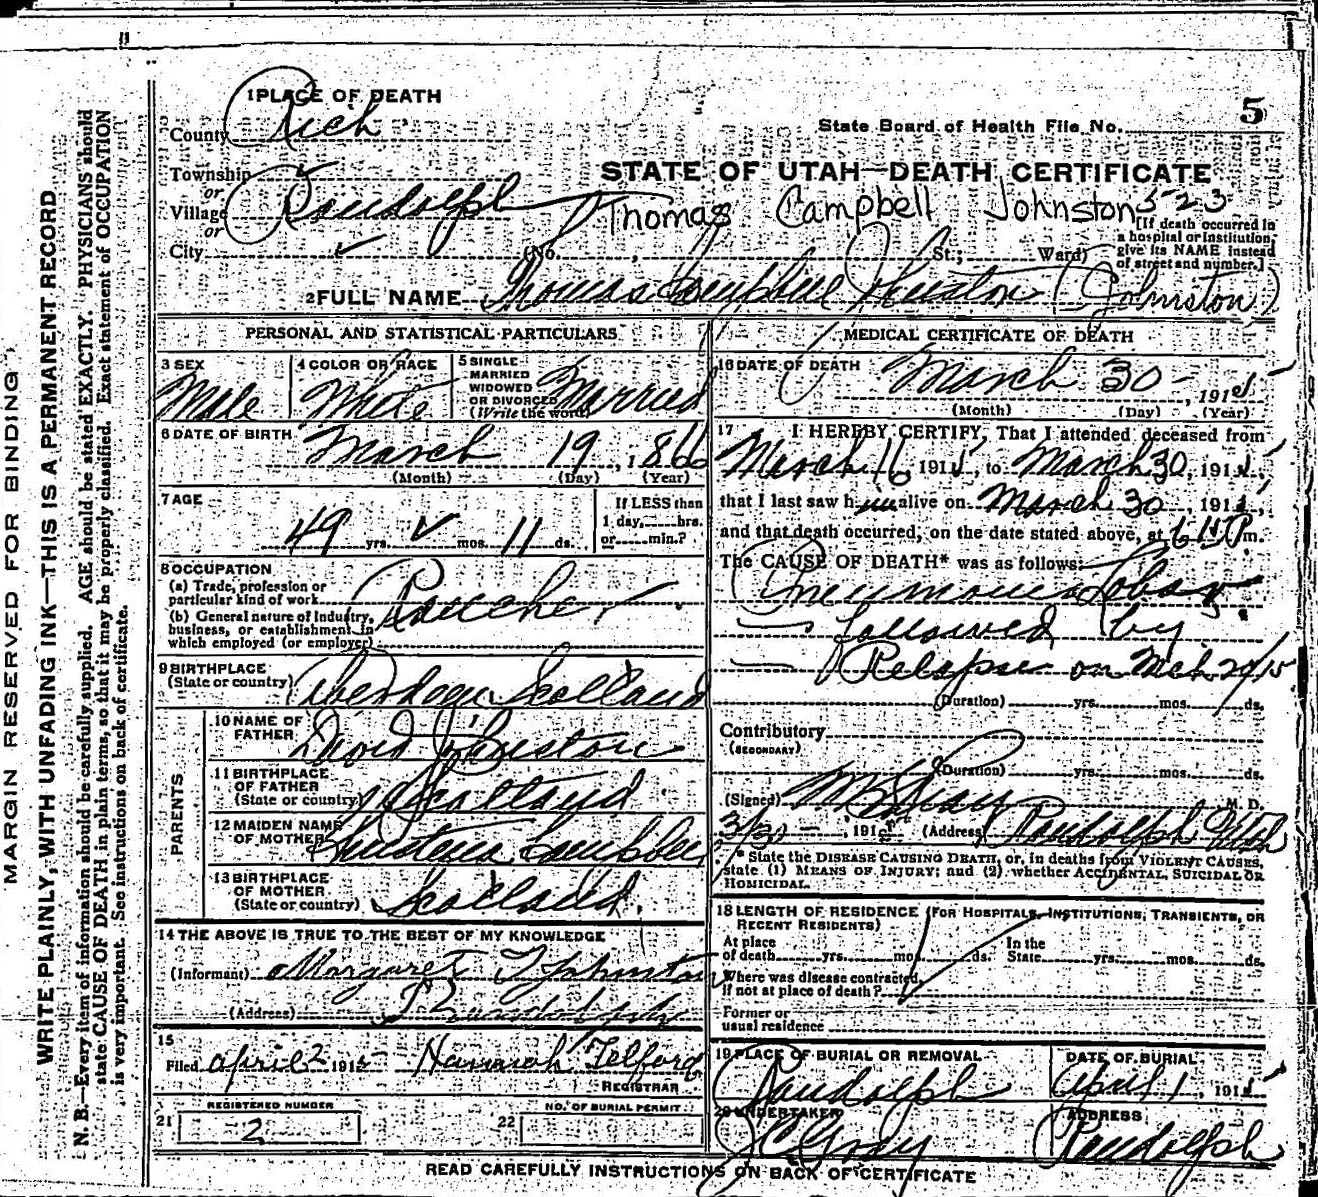 1 PLACE OF DEATH
County Rich
Township
or
Village Randolph
or
City
5
State Board of Health File No.
STATE OF UTAH—DEATH CERTIFICATE
Thomas Campbell Johnston 523
[If death occurred in
a hospital or institution,
give its NAME instead
of street and number.]
(No. , St.; Ward)
2 FULL NAME Thomas Campbell Johnston (Johnston)
PERSONAL AND STATISTICAL PARTICULARS
3 SEX Male
4 COLOR OR RACE White
5 SINGLE
MARRIED
WIDOWED
OR DIVORCED
(Write the word) Married
6 DATE OF BIRTH March 19, 1866
(Month) (Day) (Year)
7 AGE
49 yrs. ✓ mos. 11 ds.
If LESS than
1 day, hrs.
or min.?
8 OCCUPATION
(a) Trade, profession or
particular kind of work Rancher
(b) General nature of Industry,
business, or establishment in
which employed (or employer)
9 BIRTHPLACE
(State or country) Aberdeen Scotland
PARENTS
10 NAME OF
FATHER David Johnston
11 BIRTHPLACE
OF FATHER
(State or country) Scotland
12 MAIDEN NAME
OF MOTHER Campbell
13 BIRTHPLACE
OF MOTHER
(State or country) Scotland.
14 THE ABOVE IS TRUE TO THE BEST OF MY KNOWLEDGE
(Informant) Margaret T Johnston
(Address) Randolph
15
Filed April 2 1915 Hannah Telford
REGISTRAR
21 REGISTERED NUMBER
2
22 NO. OF BURIAL PERMIT
MEDICAL CERTIFICATE OF DEATH
16 DATE OF DEATH
March 30 - , 1915
(Month) (Day) (Year)
17 I HEREBY CERTIFY, That I attended deceased from
March 16, 1915, to March 30, 1915,
that I last saw him alive on March 30, 1915,
and that death occurred, on the date stated above, at m.
The CAUSE OF DEATH* was as follows:
Pneumonia Lobar
— followed by
— Relapse on Mch 29/15
(Duration) yrs. mos. ds.
Contributory
(SECONDARY)
(Duration) yrs. mos. ds.
(Signed) M. D.
3/30 — , 1915 (Address) Randolph Utah
* State the DISEASE CAUSING DEATH, or, in deaths from VIOLENT CAUSES,
state (1) MEANS OF INJURY; and (2) whether ACCIDENTAL, SUICIDAL OR
HOMICIDAL.
18 LENGTH OF RESIDENCE (FOR HOSPITALS, INSTITUTIONS, TRANSIENTS, OR
RECENT RESIDENTS)
At place
of death yrs. mos. ds.
In the
State yrs. mos. ds.
Where was disease contracted,
if not at place of death?
Former or
usual residence
19 PLACE OF BURIAL OR REMOVAL
Randolph
DATE OF BURIAL
April 1, 1915
20 UNDERTAKER
J C Gray
ADDRESS
Randolph
READ CAREFULLY INSTRUCTIONS ON BACK OF CERTIFICATE
MARGIN RESERVED FOR BINDING
WRITE PLAINLY, WITH UNFADING INK—THIS IS A PERMANENT RECORD
N. B.—Every item of information should be carefully supplied. AGE should be stated EXACTLY. PHYSICIANS should
state CAUSE OF DEATH in plain terms, so that it may be properly classified. Exact statement of OCCUPATION
is very important. See instructions on back of certificate.